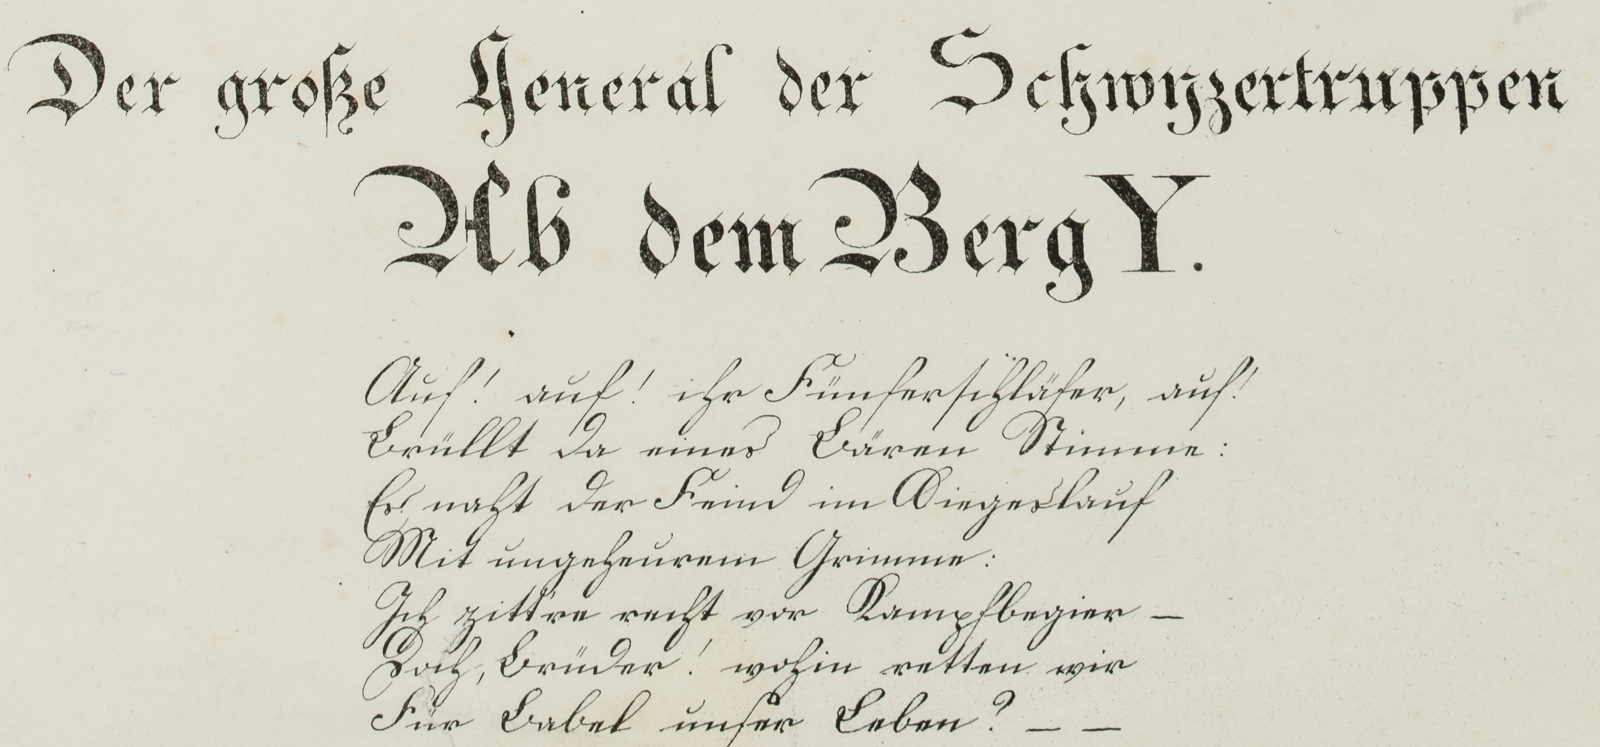 Der große General der Schwyzertruppen
Ab dem Berg Y.
Auf! auf! ihr Fünferschläfer, auf!
Brüllt da eines Bären Stimme:
Es naht der Feind im Siegeslauf
Mit ungeheurem Grimme:
Ich zitt're recht vor Kampfbegier —
Doch, Brüder! wohin retten wir
Für Babel unser Leben? — —